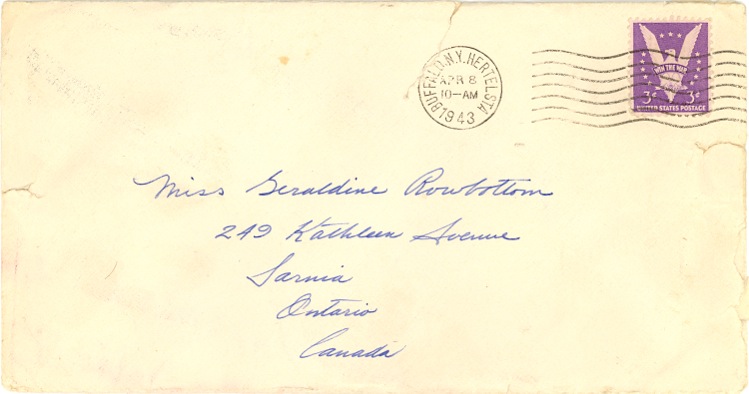 BUFFALO, N.Y. HERTEL STA.
APR 8
10-AM
1943
WIN THE WAR
3¢ 3¢
UNITED STATES POSTAGE
Miss Geraldine Rowbottom
249 Kathleen Avenue
Sarnia
Ontario
Canada